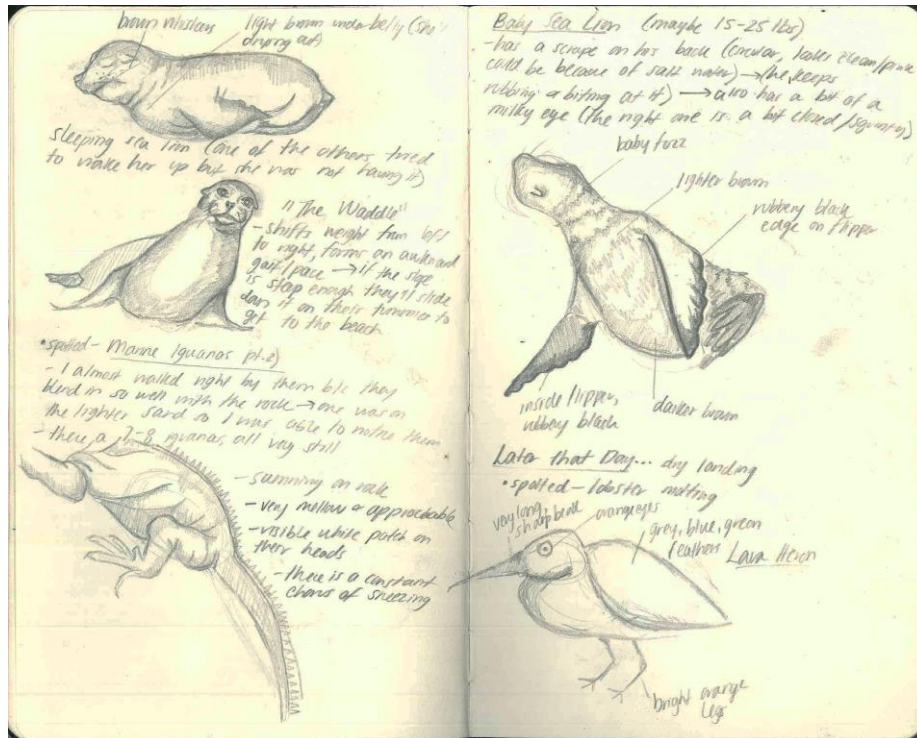 brown whiskers
light brown under belly (she's
drying out)
sleeping sea lion (one of the others tried
to wake her up but she was not having it)
"The Waddle"
- shifts weight from left
to right, forms an awkward
gait/pace → if the slope
is steep enough they'll slide
down it on their tummies to
get to the beach
• spotted - Marine Iguanas pt. 2)
- I almost walked right by them b/c they
blend in so well with the rock → one was on
the lighter sand so I was able to notice them
- there, a 7-8 iguanas, all very still
- sunning on rock
- very mellow & approachable
- visible white patch on
their heads
- there is a constant
chorus of sneezing
Baby Sea Lion (maybe 15-25 lbs)
- has a scrape on his back (circular, looks clean/pink
could be because of salt water) → (he keeps
rubbing & biting at it) → also has a bit of a
milky eye (the right one is a bit closed/squinty)
baby fuzz
lighter brown
rubbery black
edge on flipper
inside flipper,
rubbery black
darker brown
Later that Day... dry landing
• spotted - lobster molting
very long,
sharp beak
orange eyes
grey, blue, green
feathers
Lava Heron
bright orange
legs